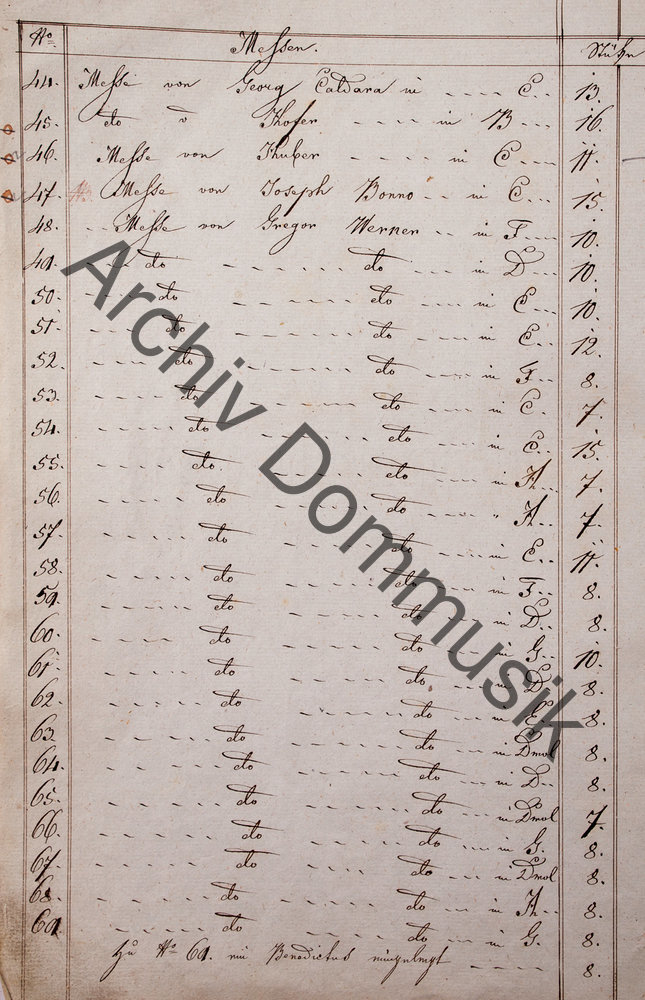 No Messen. Stükh
44. Messe von Georg Caldara in C. 13.
45. do v Khofer in B 16.
46. Messe von Huber in C 11.
47. Messe von Joseph Bonno in C 15.
48. Messe von Gregor Werner in F 10.
49. do do in D 10.
50. do do in C 10.
51. do do in C 12.
52. do do in F 8.
53. do do in C. 7.
54. do do in C. 15.
55. do do in A. 7.
56. do do " A. 7.
57. do do in C. 11.
58. do do in F. 8.
59. do do in D. 8.
60. do do in G. 10.
61. do do in D 8.
62. do do in C 8.
63. do do in Dmol 8.
64. do do in D. 8.
65. do do in Dmol 7.
66. do do in G. 8.
67. do do in Dmol 8.
68. do do in A. 8.
69. do do in G. 8.
Zu No 69. ein Benedictus eingelegt 8.
Archiv Dommusik